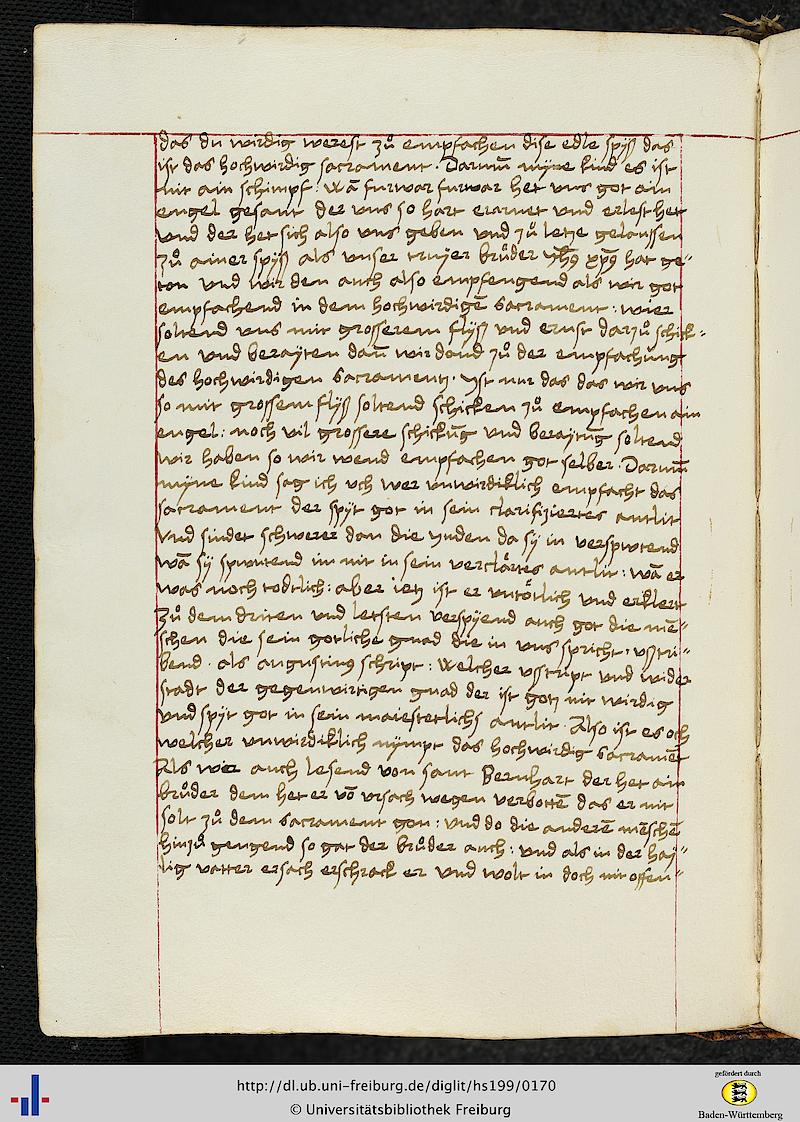 das du wirdig werest zů empfachen dise edle spyß das
ist das hochwirdig sacrament · Darum̄ myne kind es ist
nit ain schimpf : wā furwar furwar het vns got ain
engel gesant der vns so hart erarnet vnd erlest het
vnd der het sich also vns geben vnd zů letze gelaussen
zů ainer spyß als vnser truyer brůder yh̄s xp̄s hat ge〃
ton vnd wir den auch also empfengend als wir got
empfachend in dem hochwirdigē sacrament : wier
soltend vns mit grosserem flyß vnd ernst darzů schick〃
en vnd berayten dan̄ wir dond zů der empfachung
des hochwirdigen sacramentz · Jst nur das das wir vns
so mit grossem flyß soltend schicken zů empfachen ain
engel : noch vil grossere schickūg vnd beraytūg soltend
wir haben so wir wend empfachen got selber · Darum̄
myne kind sag ich vch wer vnwirdiklich empfacht das
sacrament der spyt got in sein clarifiziertes antlit
vnd sindet schwerer dan die yuden da sy in verspwtend
wā sy spwutend im nit in sein verclärtes antlit : wā er
was noch todtlich : aber ietz ist er vntötlich vnd erklert
Zů dem driten vnd letsten verspyend auch got die mē〃
schen die sein gotliche gnad die in vns spricht · vsstri〃
bend · als augustinus schript : welcher vsstript vnd wider
stadt der gegenwirtigen gnad der ist gotz nit wirdig
vnd spyt got in sein maiestetlichs antlit · Also ist es och
welcher vnwirdiklich nympt das hochwirdig sacramēt
Als wir auch lesend von sant Bernhart der het ain
brůder dem het er vō vrsach wegen verbottē das er nit
solt zů dem sacrament gon : vnd do die anderē mēschē
hinzů gengend so gat der brůder auch : vnd als in der hay〃
lig vatter ersach erschrack er vnd wolt in doch nit offen〃
http://dl.ub.uni-freiburg.de/diglit/hs199/0170
© Universitätsbibliothek Freiburg
gefördert durch
Baden-Württemberg